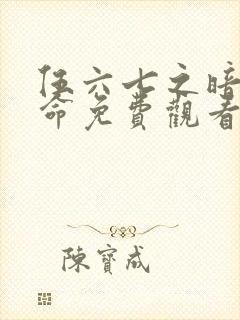 伍六七之暗
命免費觀看
陳寶成